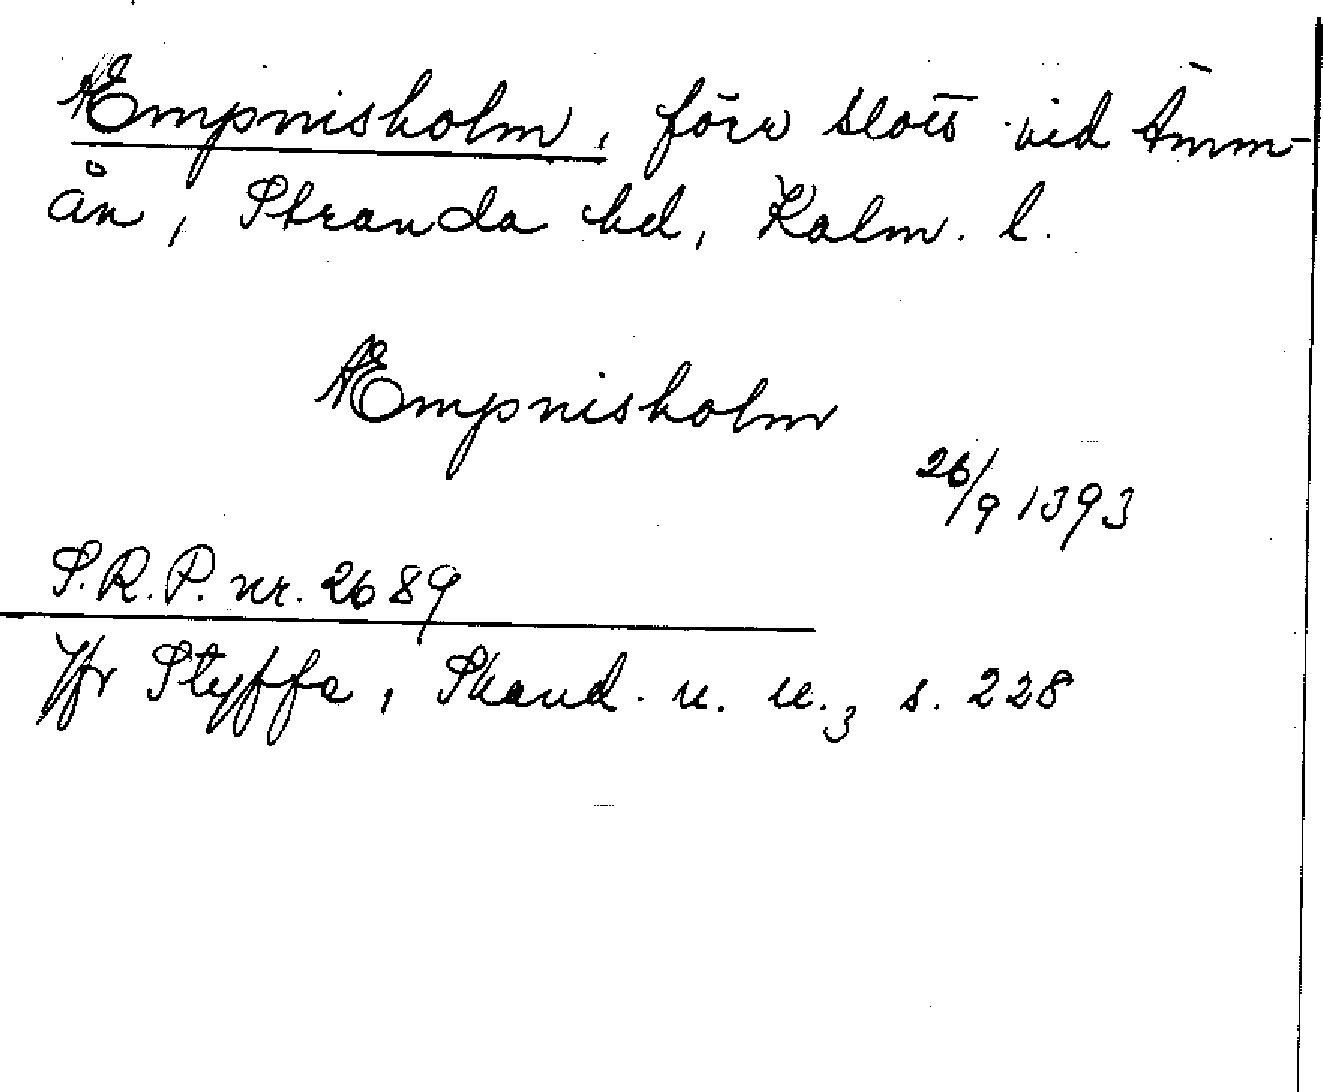 Æmpnisholm, förr slott vid Ämm-
ån, Stranda hd, Kalm. l.
Æmpnisholm
26/9 1393
S.R.P. nr. 2689
Jfr Styffe, Skand. u. u.3 s. 228